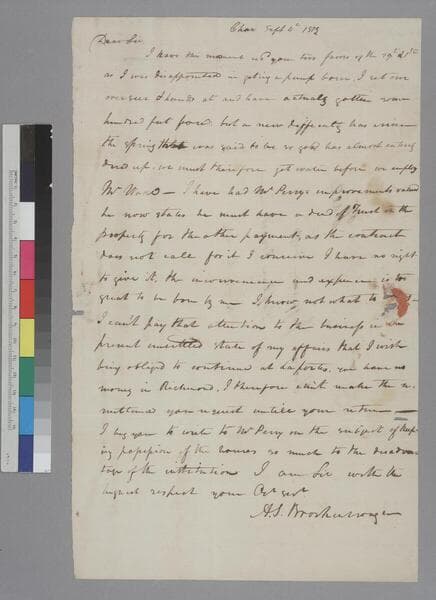 Char Sept 4th 1819
Dear Sir
I have this moment recd your two favors of the 19th & 21st
as I was disappointed in geting a pump borer, I set our
overseer & hands at and have actually gotten some
hundred feet bored, but a new difficulty has arisen
the spring that was said to be so good has almost entirely
dried up. we must therefore get water before we employ
Mr Ward — I have had Mr Perry's improvements valued
he now states he must have a deed of Trust on the
property for the other payments, as the contract
does not call for it I conceive I have no right
to give it, the inconvenience and expence is too
great to be born by me I know not what to
I can't pay that attention to the business in the
present unsettled state of my affairs that I wish
being obliged to continue at Laportes. you have no
money in Richmond, I therefore can't make the re-
mittance you request untill your return —
I beg you to write to Mr Perry on the subject of keep-
ing possession of the houses so much to the disadvan-
tage of the institution I am Sir with the
highest respect your Obt Servt
A. S. Brockenbrough